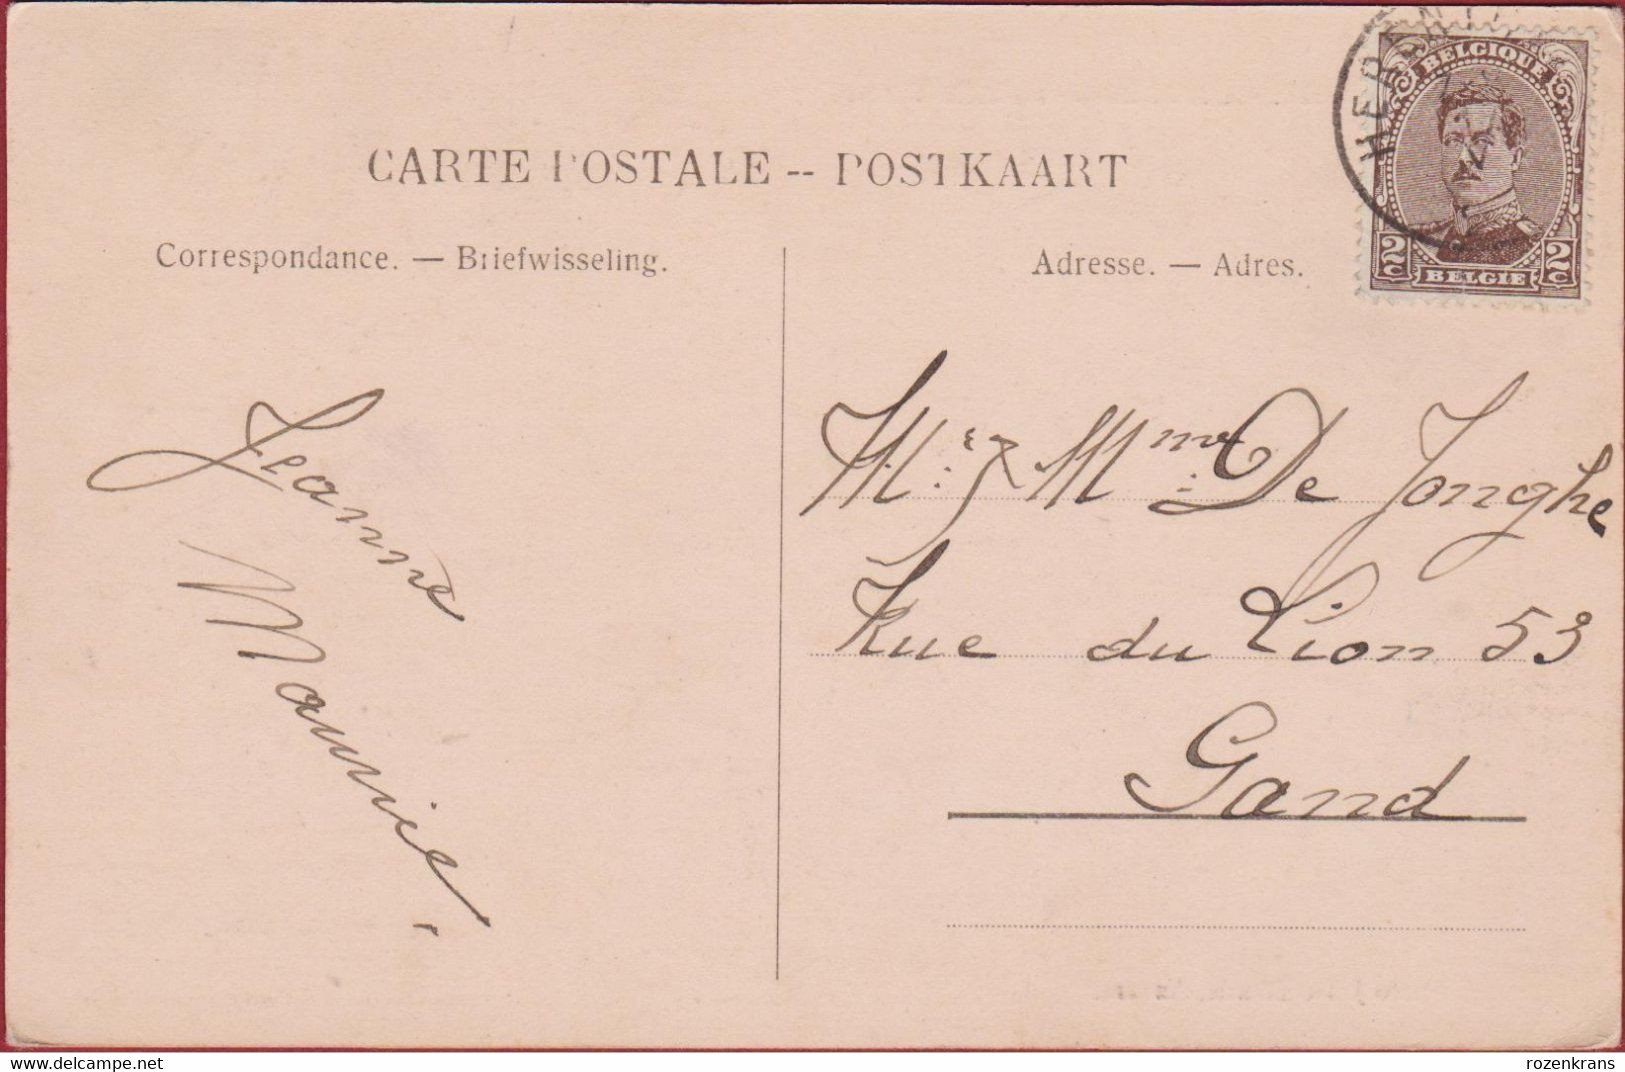 CARTE POSTALE -- POSTKAART
Correspondance. — Briefwisseling.
Adresse. — Adres.
BELGIQUE
2c 2c
BELGIE
Jeanne
Maurice.
Mr & Mme De Jonghe
Rue du Lion 53
Gand
delcampe.net
rozenkrans